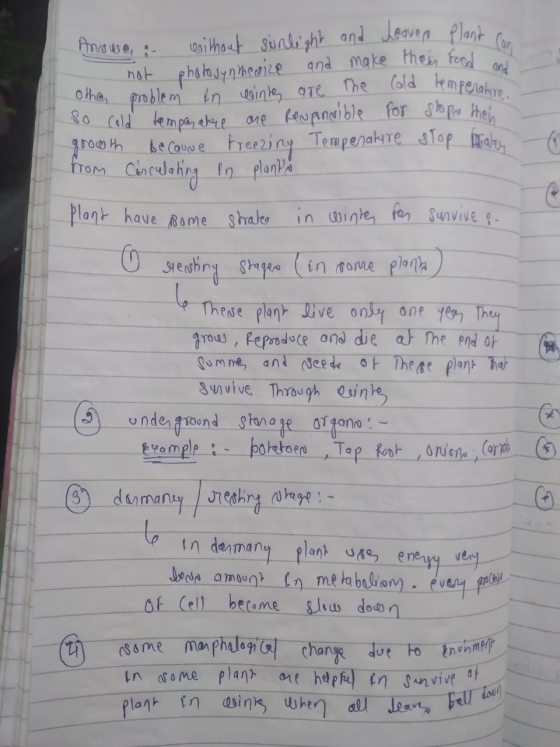 Answer :- without sunlight and leaves plant can
not photosynthesize and make their food and
other problem in winter are the cold temperature.
so cold temperature are responsible for stops their
growth because freezing Temperature stop water
from circulating in plants
plant have some strates in winter for survive :-
① resting stages (in some plants)
↳ These plant live only one year, They
grow, Reproduce and die at the end of
summer and seeds of these plant that
survive through winter
② underground storage organs :-
Example :- potatoes, Tap Root, onions, Carrots
③ darmancy / resting stage :-
↳ in darmany plant uses energy very
less amount in metabolism. every process
of cell become slow down
④ some morphological change due to envirnment
in some plant are helpful in survive of
plant in winter when all leaves fell down